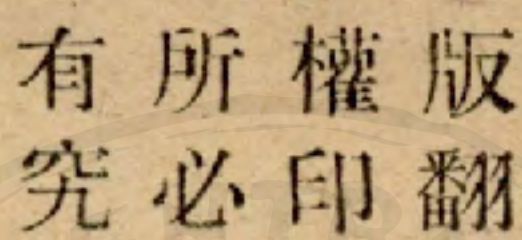 版權所有
翻印必究